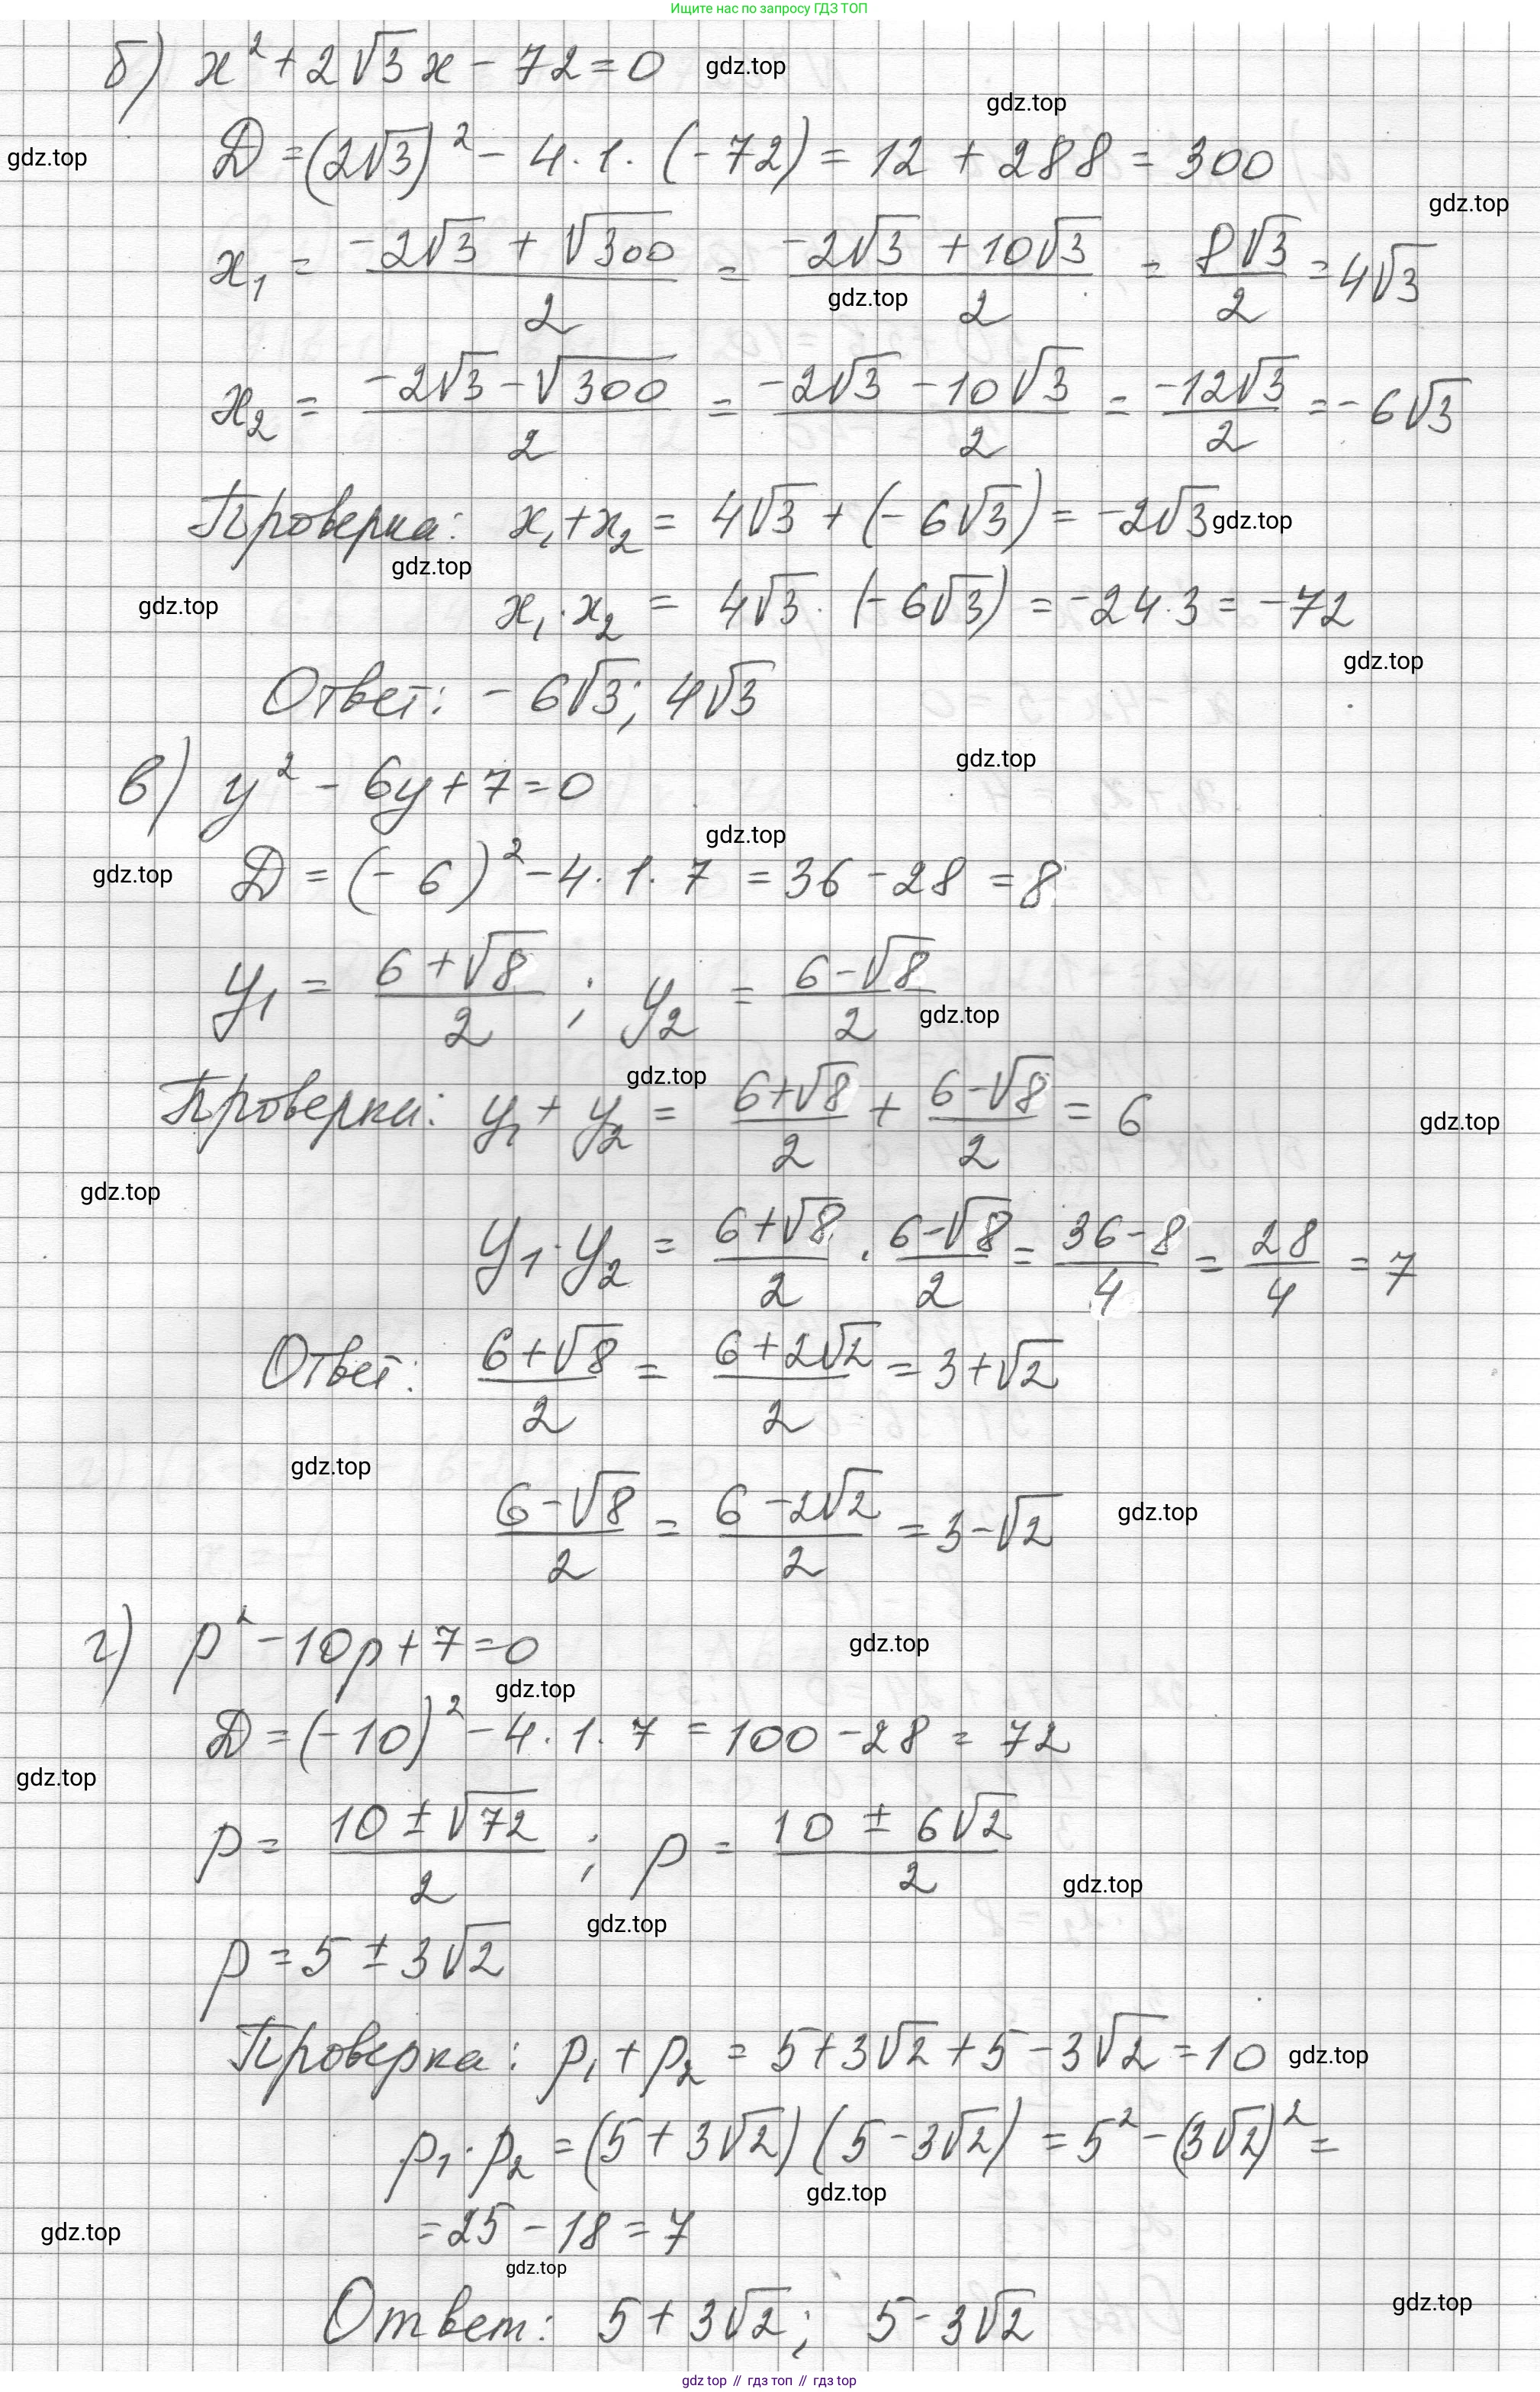 Ищите нас по запросу ГДЗ ТОП
б) x² + 2√3 x - 72 = 0 gdz.top
gdz.top
gdz.top D = (2√3)² - 4 · 1 · (-72) = 12 + 288 = 300
gdz.top
x₁ = (-2√3 + √300)/2 = (-2√3 + 10√3)/2 = 8√3/2 = 4√3
gdz.top
x₂ = (-2√3 - √300)/2 = (-2√3 - 10√3)/2 = -12√3/2 = -6√3
Проверка: x₁ + x₂ = 4√3 + (-6√3) = -2√3 gdz.top
gdz.top
gdz.top x₁ · x₂ = 4√3 · (-6√3) = -24 · 3 = -72
gdz.top
Ответ: -6√3; 4√3
gdz.top
в) y² - 6y + 7 = 0
gdz.top
gdz.top D = (-6)² - 4 · 1 · 7 = 36 - 28 = 8
y₁ = (6 + √8)/2 ; y₂ = (6 - √8)/2
gdz.top
gdz.top
Проверка: y₁ + y₂ = (6 + √8)/2 + (6 - √8)/2 = 6 gdz.top
gdz.top
y₁ · y₂ = (6 + √8)/2 · (6 - √8)/2 = (36 - 8)/4 = 28/4 = 7
Ответ: (6 + √8)/2 = (6 + 2√2)/2 = 3 + √2
gdz.top
(6 - √8)/2 = (6 - 2√2)/2 = 3 - √2 gdz.top
г) p² - 10p + 7 = 0 gdz.top
gdz.top
D = (-10)² - 4 · 1 · 7 = 100 - 28 = 72
gdz.top
p = (10 ± √72)/2 ; p = (10 ± 6√2)/2
gdz.top
gdz.top
p = 5 ± 3√2
Проверка: p₁ + p₂ = 5 + 3√2 + 5 - 3√2 = 10 gdz.top
p₁ · p₂ = (5 + 3√2)(5 - 3√2) = 5² - (3√2)² =
gdz.top
gdz.top = 25 - 18 = 7
gdz.top
Ответ: 5 + 3√2; 5 - 3√2 gdz.top
gdz top // гдз топ // гдз top